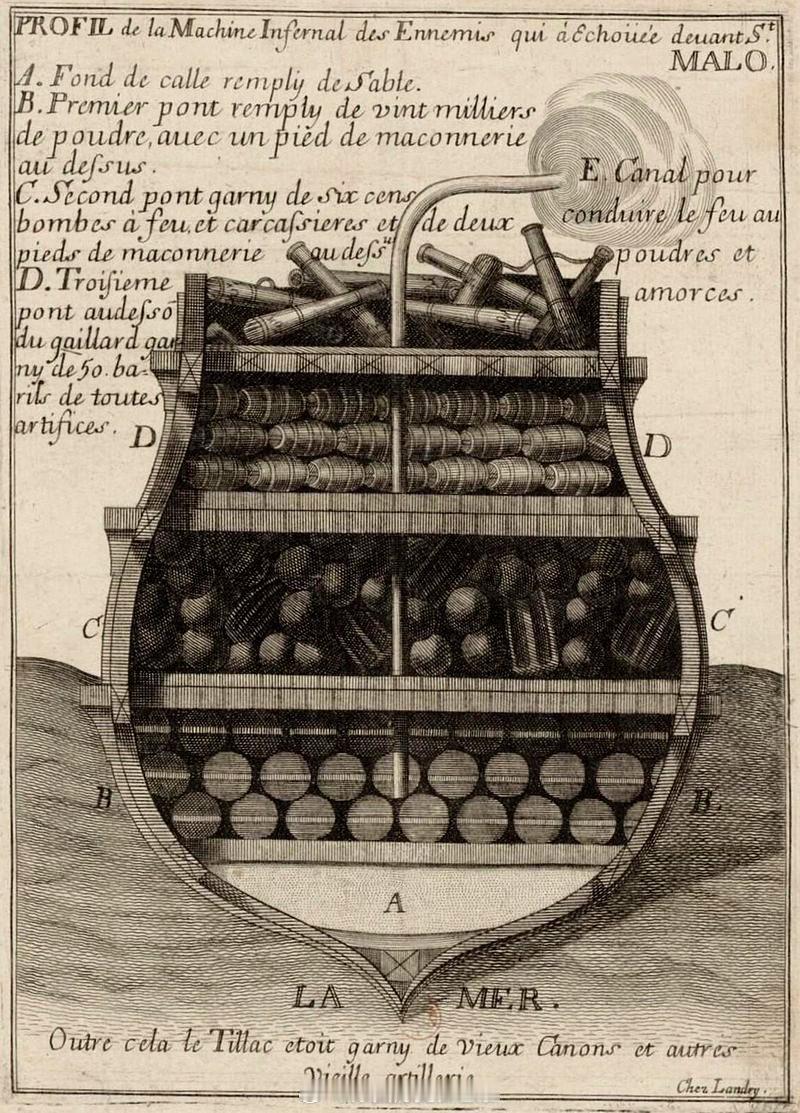 PROFIL de la Machine Infernal des Ennemis qui à Echoüée deuant S.t
MALO.
A. Fond de calle remply de Sable.
B. Premier pont remply de vint milliers
de poudre, auec un piéd de maconnerie
au dessus.
C. Second pont garny de Six cens
bombes à feu, et carcassieres et de deux
pieds de maconnerie au dess.us
D. Troisieme
pont audessõ
du gaillard gar
ny de 50. ba-
rils de toutes
artifices.
E. Canal pour
conduire le feu au
poudres et
amorces.
D
D
C
C
B
B.
A
LA MER.
Outre cela le Tillac etoit garny de Vieux Canons et autres
Vieille artillerie
Chez Landry.